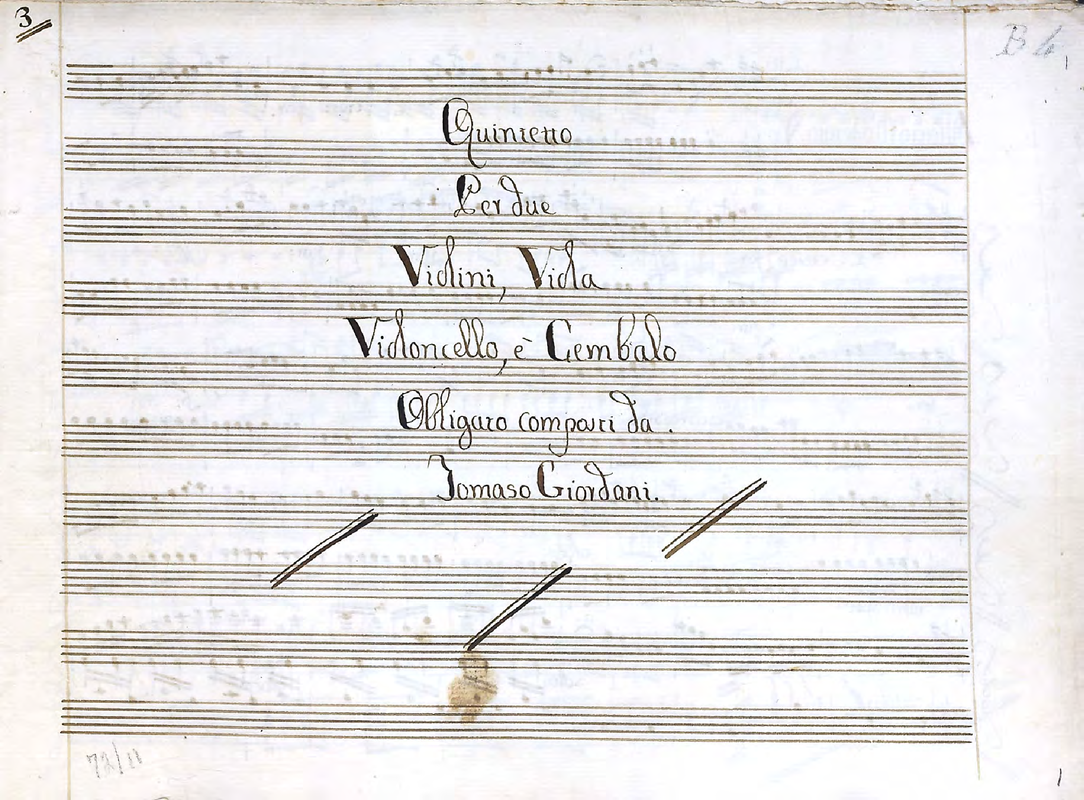 3
B 6
Quintetto
Per due
Violini, Viola
Violoncello, è Cembalo
Obligato composti da.
Tomaso Giordani.
72/11
1